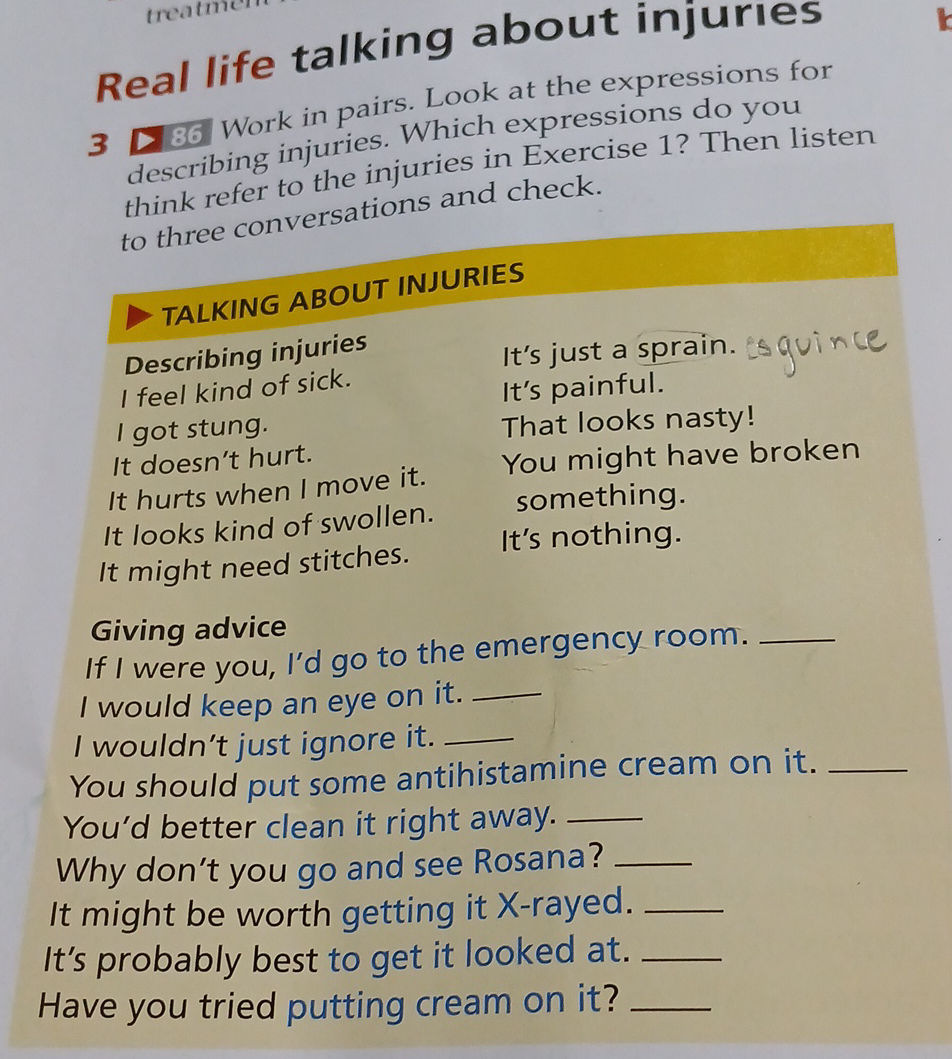 Real life talking about injuries
3 86 Work in pairs. Look at the expressions for
describing injuries. Which expressions do you
think refer to the injuries in Exercise 1? Then listen
to three conversations and check.
TALKING ABOUT INJURIES
Describing injuries
I feel kind of sick.
I got stung.
It doesn't hurt.
It hurts when I move it.
It looks kind of swollen.
It might need stitches.
It's just a sprain. esguince
It's painful.
That looks nasty!
You might have broken
something.
It's nothing.
Giving advice
If I were you, I'd go to the emergency room. ____
I would keep an eye on it. ____
I wouldn't just ignore it. ____
You should put some antihistamine cream on it. ____
You'd better clean it right away. ____
Why don't you go and see Rosana? ____
It might be worth getting it X-rayed. ____
It's probably best to get it looked at. ____
Have you tried putting cream on it? ____